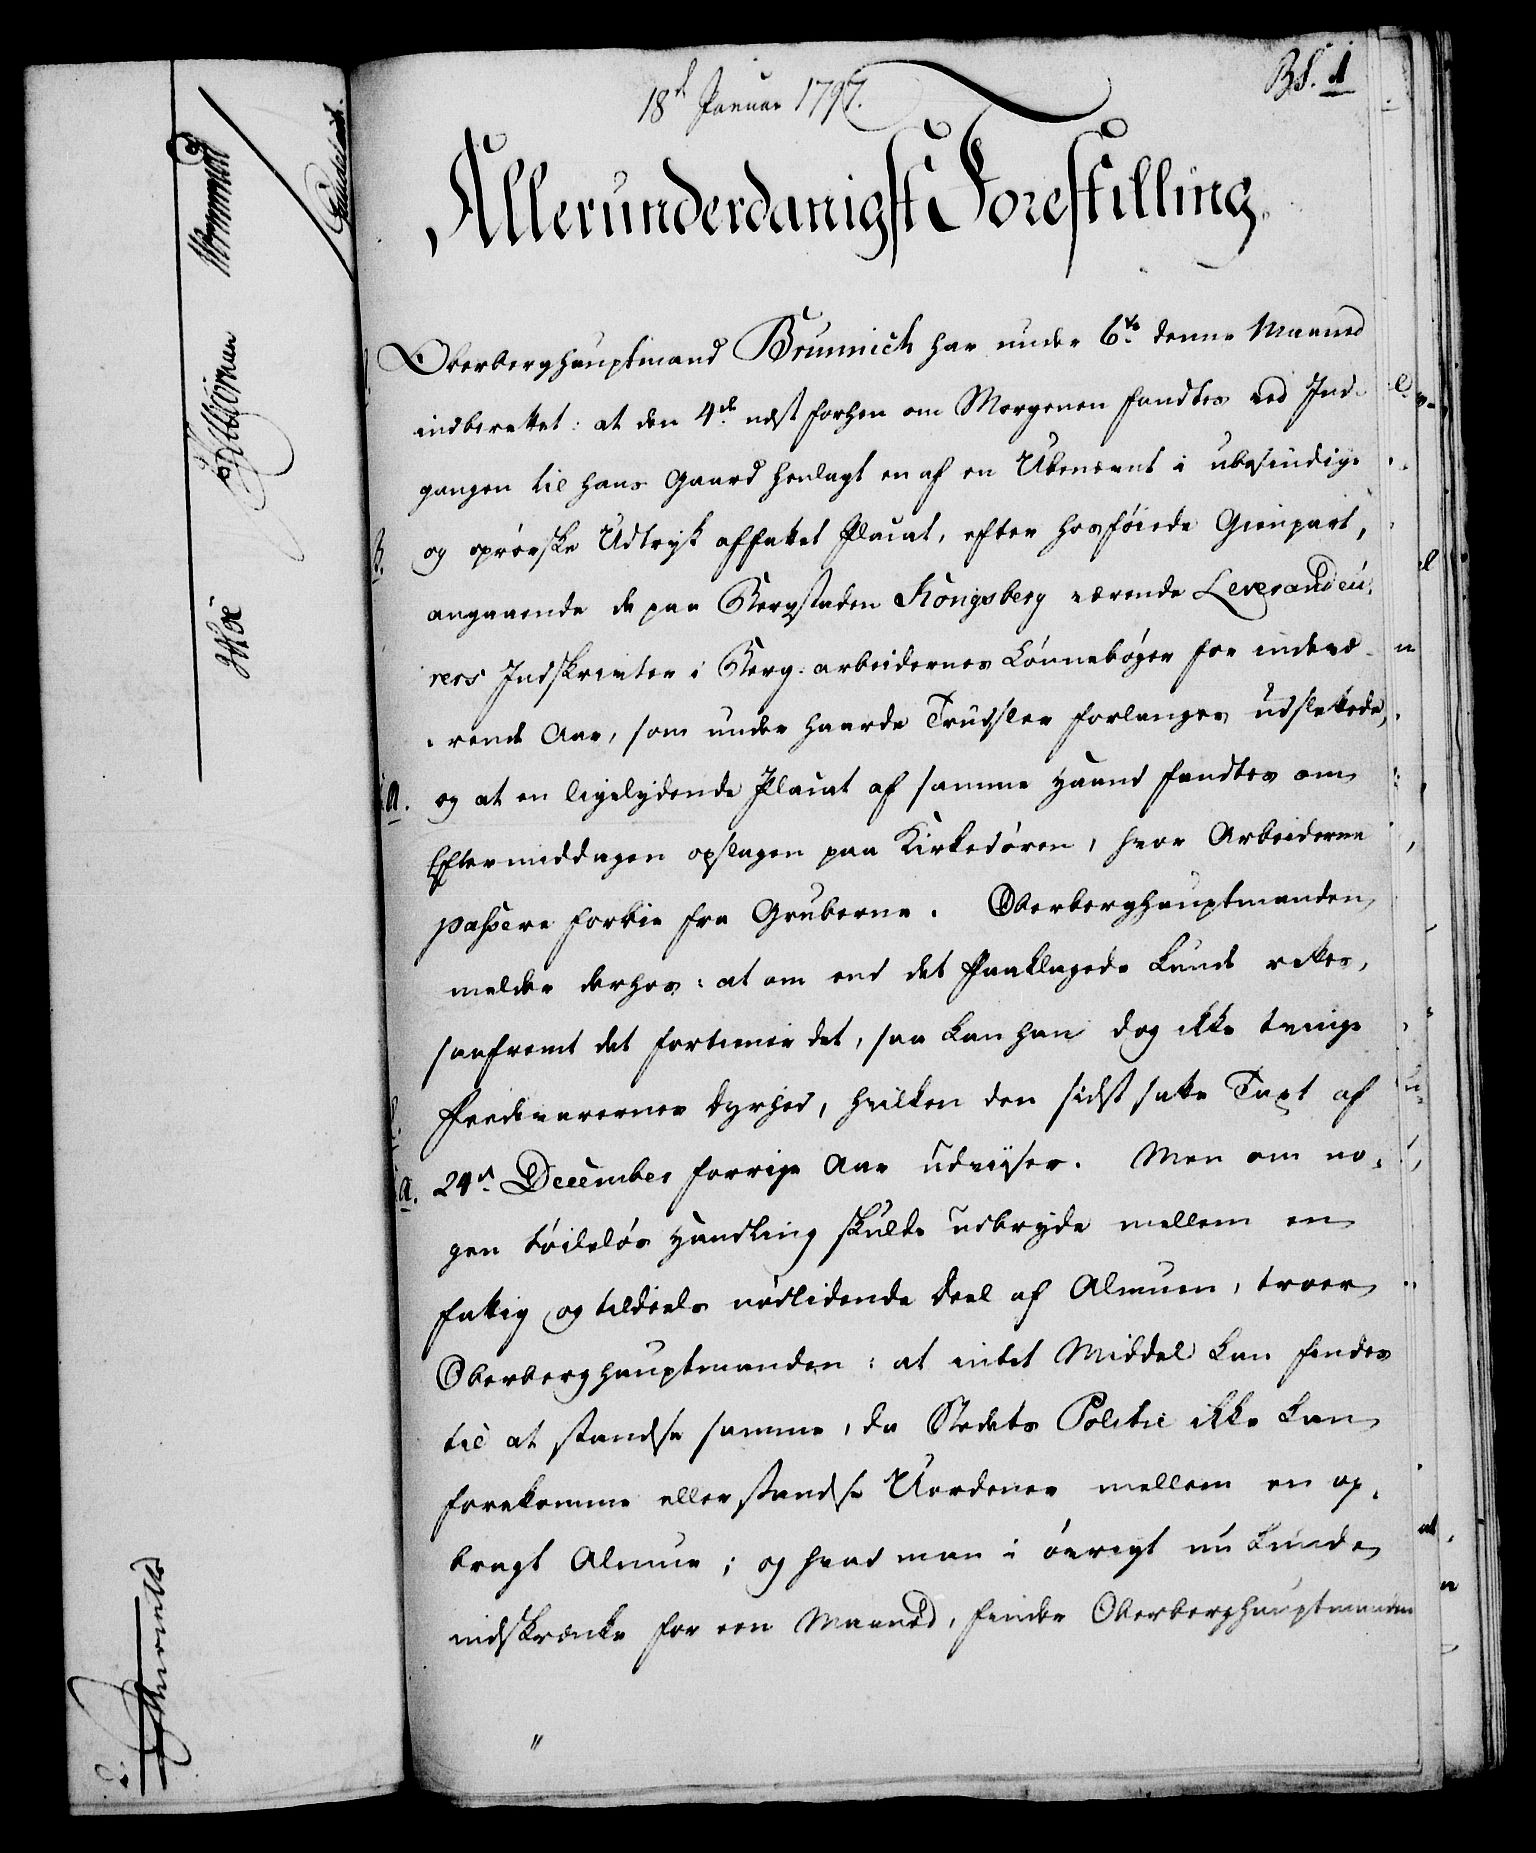 18de Januar 1797.
Bl. 1
Allerunderdanigst Forestilling.
Oberberghauptmand Brünnich har under 6te denne Maaned
indberettet: at den 4de næst forhen om Morgenen fandtes ved Ind-
gangen til hans Gaard henlagt en af en Ubenævnt i ubesindige
og oprørske Udtryk affattet Placat, efter hosføiede Gienpart,
angaaende de paa Bergstaden Kongsberg værende Leverandeu-
rers Indskrivter i Berg-arbeidernes Lønnebøger for indevæ-
rende Aar, som under haarde Trudsler forlanges udslettede,
a. og at en ligelydende Placat af samme Haand fandtes om
Eftermiddagen opslagen paa Kirkedøren, hvor Arbeiderne
passere forbie fra Gruberne. Oberberghauptmanden
melder derhos: at om end det Paaklagede kunde rettes,
saafremt det fortiener det, saa kan han dog ikke tvinge
Fødevarernes Dyrhed, hvilken den sidst satte Taxt af
a. 24de December forrige Aar udviiser. Men om no-
gen tøileløs Handling skulde udbryde mellem en
fattig og tildeels nødlidende Deel af Almuen, troer
Oberberghauptmanden: at intet Middel kan findes
til at standse samme, da Stedets Politie ikke kan
forekomme eller standse Uordener mellem en op-
bragt Almue; og hvad man i øvrigt nu kunde
indskrænke for een Maaned, finder Oberberghauptmanden